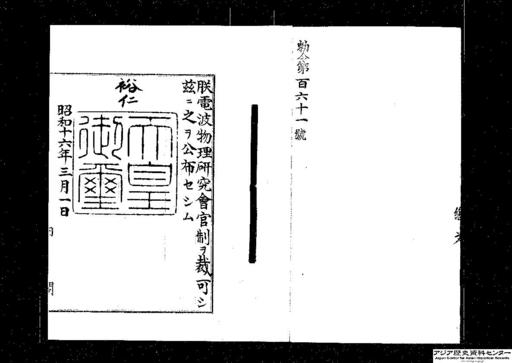 勅令第百六十一號
朕電波物理研究會官制ヲ裁可シ
茲ニ之ヲ公布セシム
裕仁
天皇
御璽
昭和十六年三月一日
内閣
アジア歴史資料センター
Japan Center for Asian Historical Records